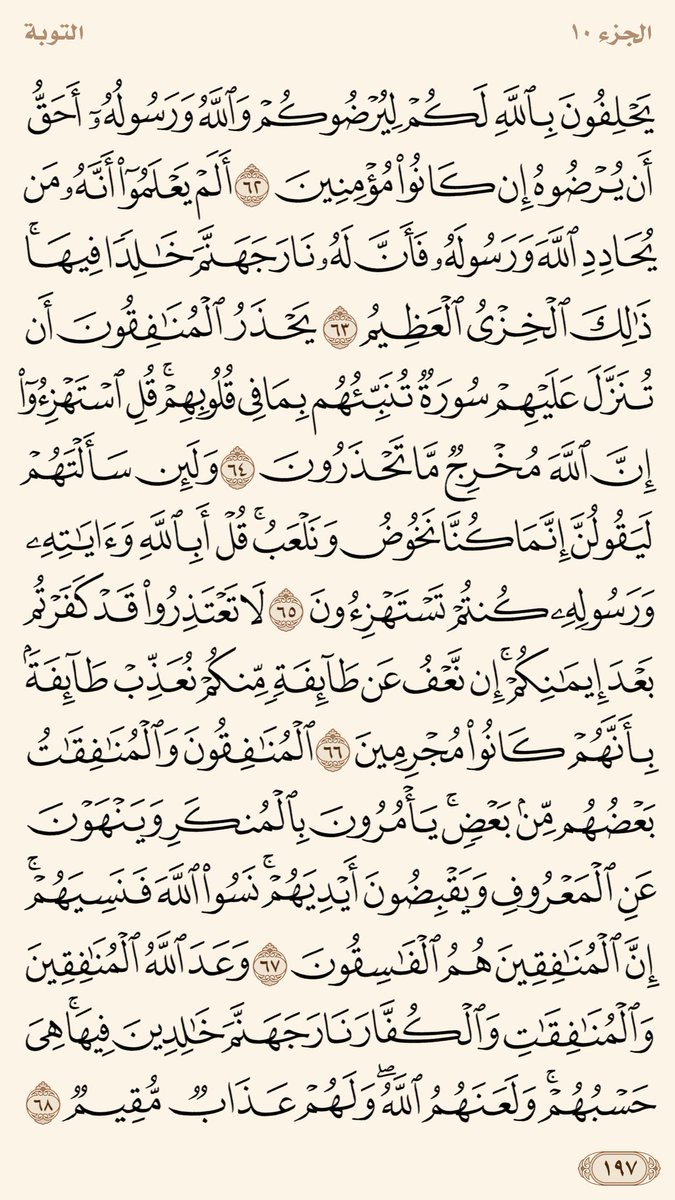 الجزء ١٠
التوبة
يَحۡلِفُونَ بِٱللَّهِ لَكُمۡ لِيُرۡضُوكُمۡ وَٱللَّهُ وَرَسُولُهُۥٓ أَحَقُّ
أَن يُرۡضُوهُ إِن كَانُواْ مُؤۡمِنِينَ ٦٢ أَلَمۡ يَعۡلَمُوٓاْ أَنَّهُۥ مَن
يُحَادِدِ ٱللَّهَ وَرَسُولَهُۥ فَأَنَّ لَهُۥ نَارَ جَهَنَّمَ خَٰلِدٗا فِيهَاۚ
ذَٰلِكَ ٱلۡخِزۡيُ ٱلۡعَظِيمُ ٦٣ يَحۡذَرُ ٱلۡمُنَٰفِقُونَ أَن
تُنَزَّلَ عَلَيۡهِمۡ سُورَةٞ تُنَبِّئُهُم بِمَا فِي قُلُوبِهِمۡۚ قُلِ ٱسۡتَهۡزِءُوٓاْ
إِنَّ ٱللَّهَ مُخۡرِجٞ مَّا تَحۡذَرُونَ ٦٤ وَلَئِن سَأَلۡتَهُمۡ
لَيَقُولُنَّ إِنَّمَا كُنَّا نَخُوضُ وَنَلۡعَبُۚ قُلۡ أَبِٱللَّهِ وَءَايَٰتِهِۦ
وَرَسُولِهِۦ كُنتُمۡ تَسۡتَهۡزِءُونَ ٦٥ لَا تَعۡتَذِرُواْ قَدۡ كَفَرۡتُم
بَعۡدَ إِيمَٰنِكُمۡۚ إِن نَّعۡفُ عَن طَآئِفَةٖ مِّنكُمۡ نُعَذِّبۡ طَآئِفَةَۢ
بِأَنَّهُمۡ كَانُواْ مُجۡرِمِينَ ٦٦ ٱلۡمُنَٰفِقُونَ وَٱلۡمُنَٰفِقَٰتُ
بَعۡضُهُم مِّنۢ بَعۡضٖۚ يَأۡمُرُونَ بِٱلۡمُنكَرِ وَيَنۡهَوۡنَ
عَنِ ٱلۡمَعۡرُوفِ وَيَقۡبِضُونَ أَيۡدِيَهُمۡۚ نَسُواْ ٱللَّهَ فَنَسِيَهُمۡۚ
إِنَّ ٱلۡمُنَٰفِقِينَ هُمُ ٱلۡفَٰسِقُونَ ٦٧ وَعَدَ ٱللَّهُ ٱلۡمُنَٰفِقِينَ
وَٱلۡمُنَٰفِقَٰتِ وَٱلۡكُفَّارَ نَارَ جَهَنَّمَ خَٰلِدِينَ فِيهَاۚ هِيَ
حَسۡبُهُمۡۚ وَلَعَنَهُمُ ٱللَّهُۖ وَلَهُمۡ عَذَابٞ مُّقِيمٞ ٦٨
١٩٧